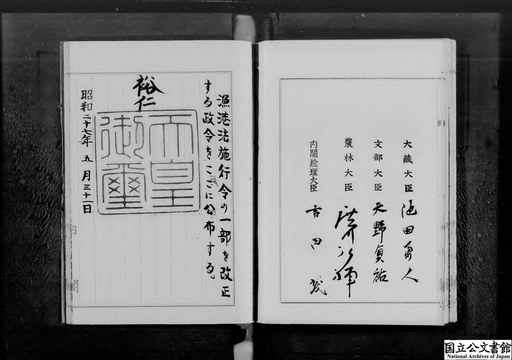 大蔵大臣 池田勇人
文部大臣 天野貞祐
農林大臣 廣川弘禅
内閣総理大臣 吉田茂
漁港法施行令の一部を改正
する政令をここに公布する。
裕仁
天皇
御璽
昭和二十七年五月三十一日
国立公文書館
National Archives of Japan